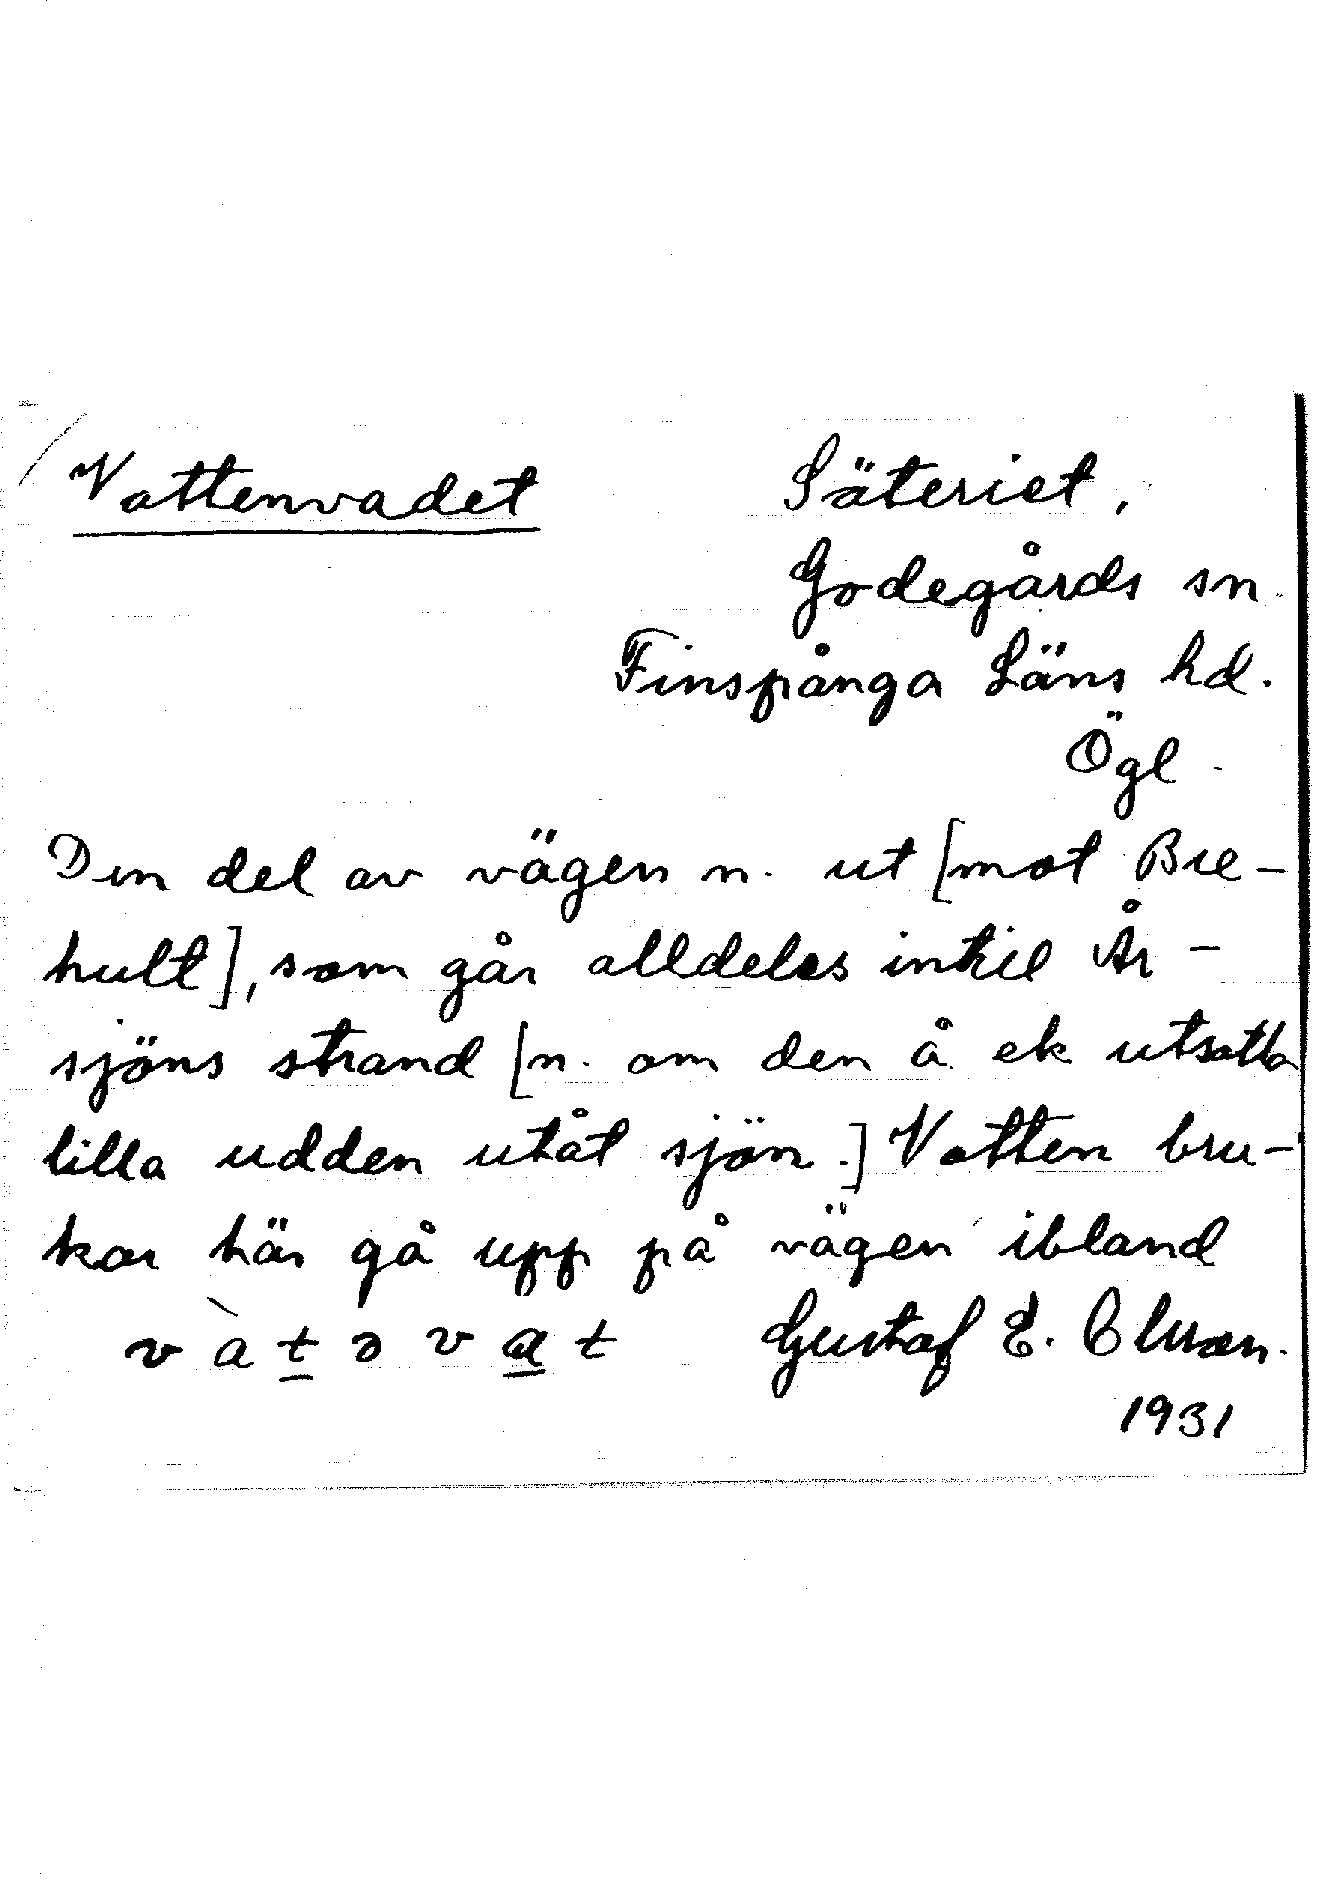 Vattenvadet Säteriet,
Godegårds sn.
Finspånga Läns hd.
Ögl.
Den del av vägen n. ut [mot Bre-
hult], som går alldeles intill År-
sjöns strand [n. om den å ek utsatta
lilla udden utåt sjön.] Vatten bru-
kar här gå upp på vägen ibland
v à t ə v a t Gustaf E. Olsson.
1931